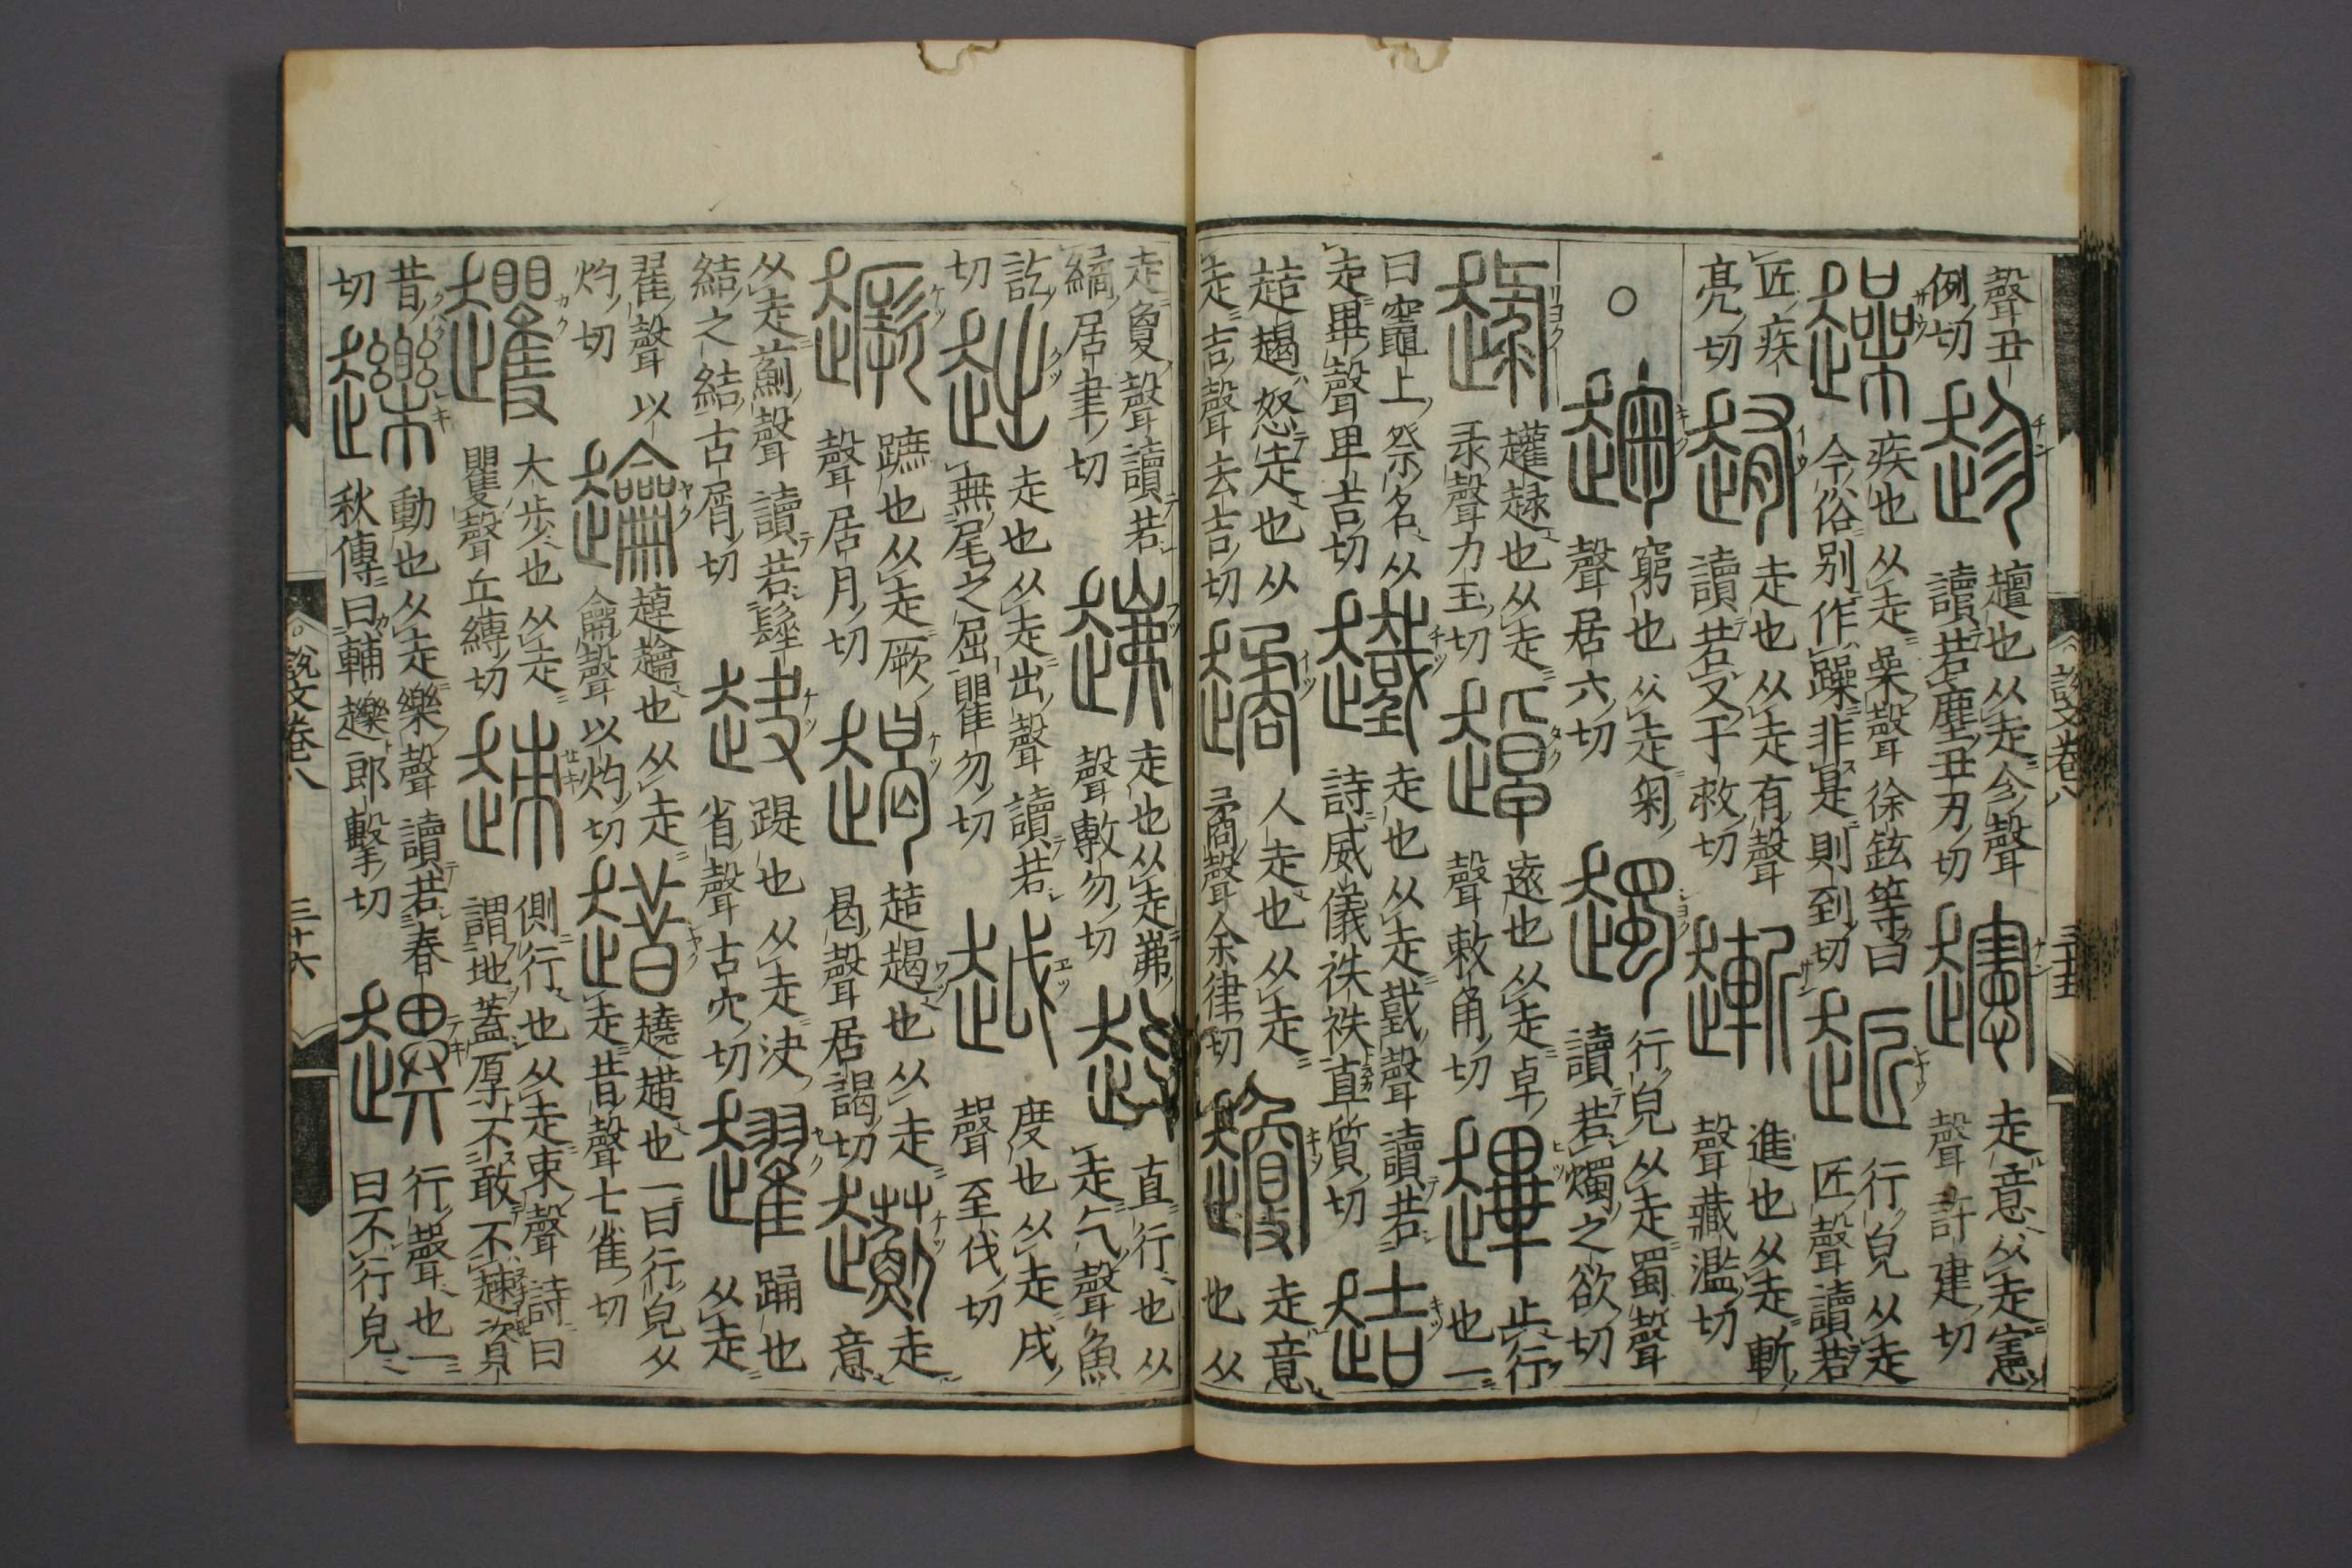 聲丑
例切
趁
䞡也从走㐱聲
讀若塵丑刃切
走意从走憲
聲許建切
趮
疾也从走喿聲徐鉉等曰
今俗别作躁非是則到切
行皃从走
匠聲讀若
匠疾
亮切
走也从走有聲
讀若又于救切
進也从走斬
聲藏濫切
○
趜
窮也从走匊
聲居六切
行皃从走蜀聲
讀若燭之欲切
趢
趢也从走
录聲力玉切
趠
遠也从走卓
聲敕角切
止行
也一
曰竈上祭名从
走畢聲卑吉切
走也从走𢧜聲讀若
詩威儀秩秩直質切
趌
趌趨怒走也从
走吉聲去吉切
人走也从走
矞聲余律切
走意
也从
走夐聲讀若
繘居聿切
走也从走弗
聲敷勿切
直行也从
走气聲魚
訖
切
走也从走出聲讀若
無尾之屈瞿勿切
越
度也从走戉
聲至伐切
蹠也从走厥
聲居月切
趌也从走
曷聲居謁切
走
意
从走薊聲讀若髽
結之結古屑切
赽
踶也从走決
省聲古穴切
趯
踊也
从走
翟聲以
灼切
也从走
龠聲以灼切
趞
趬趞也一曰行皃从
走昔聲七雀切
大步也从走
矍聲丘縛切
趚
側行也从走朿聲詩曰
謂地蓋厚不敢不趚資
昔
切
動也从走樂聲讀若春
秋傳曰輔郎擊切
趩
行聲也一
曰不行皃
說文卷八
三十五
說文卷八
三十六